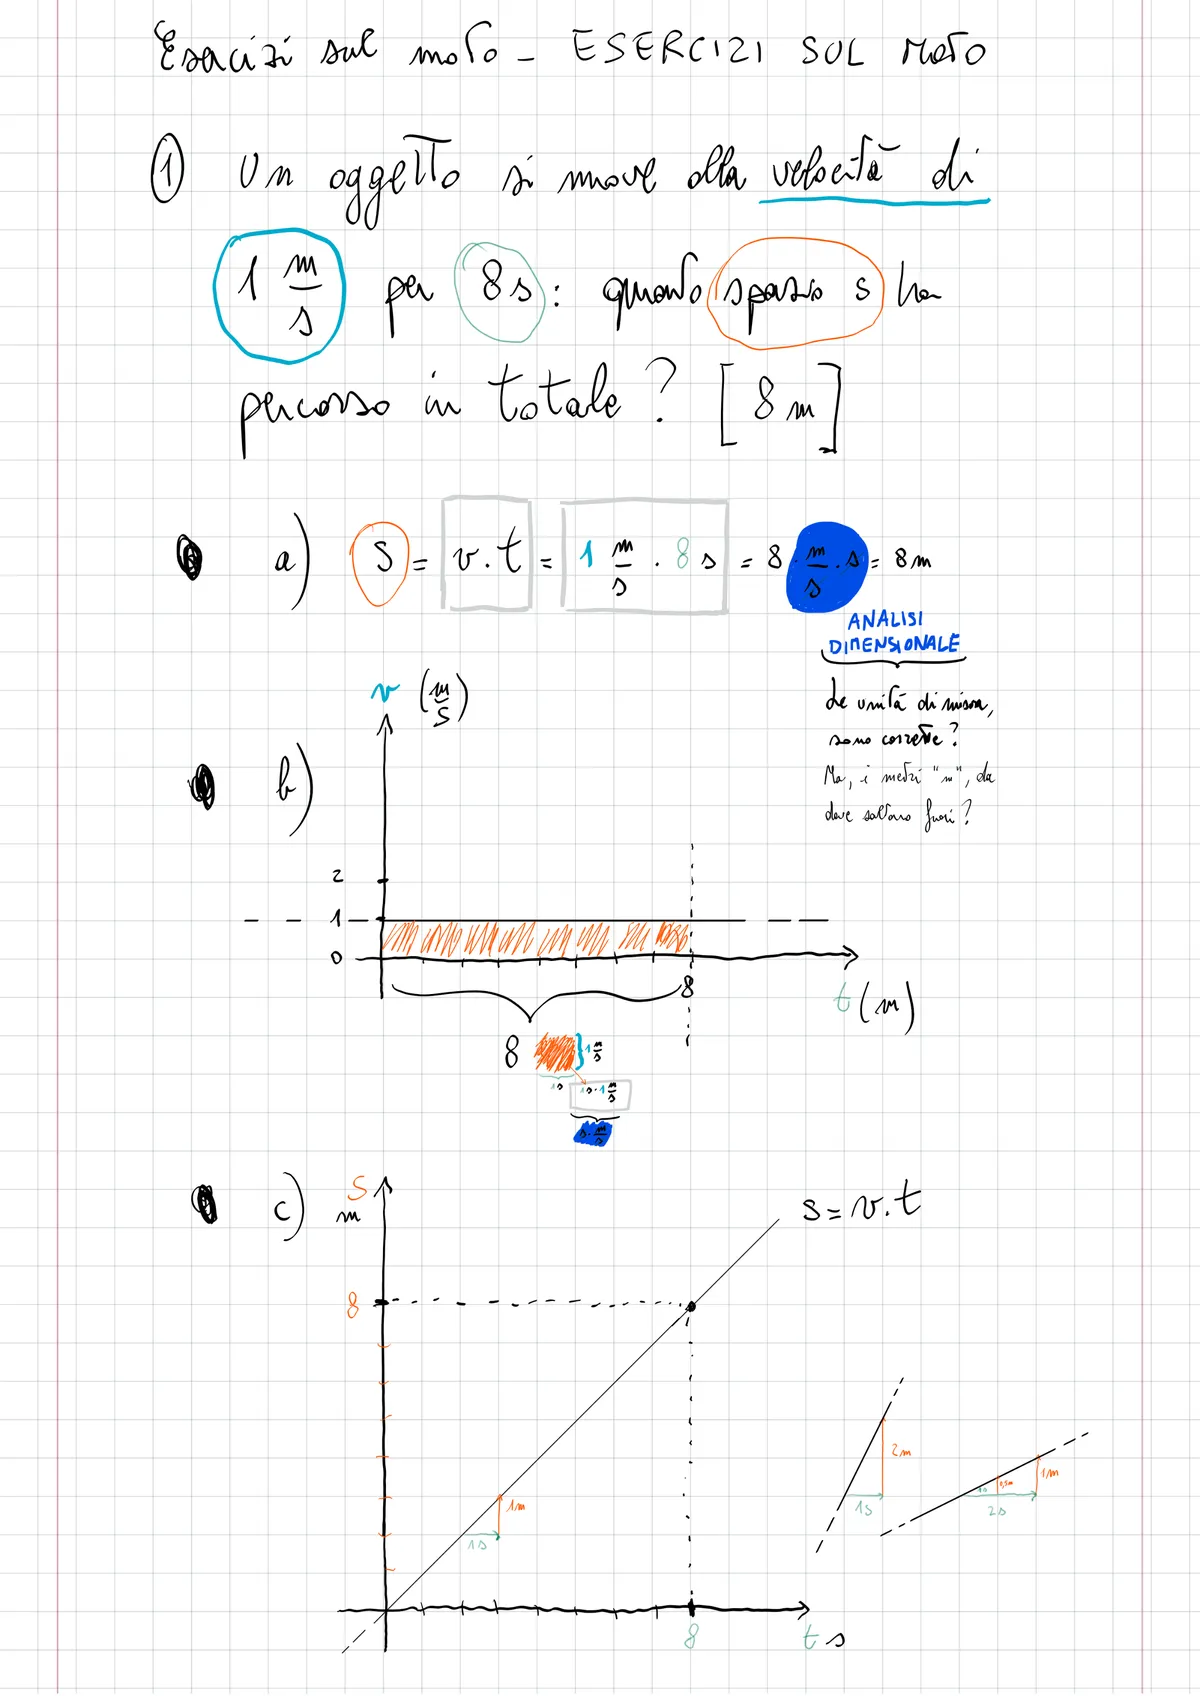 Esercizi sul moto - ESERCIZI SUL MOTO
① Un oggetto si muove alla velocità di
1 m/s per 8s: quanto spazio s ha
percorso in totale? [8m]
a) S = v.t = 1 m/s . 8 s = 8 . m/s . s = 8m
ANALISI
DIMENSIONALE
Le unità di misura,
sono corrette?
Ma, i metri "m", da
dove saltano fuori?
v (m/s)
b)
2
1
0
8
t (m)
8 } 1 m/s
1s 1s.1 m/s
s. m/s
c) S
m
s = v.t
8
2m
1m
0,5m
1s
1s
2s
1m
1s
8
t s